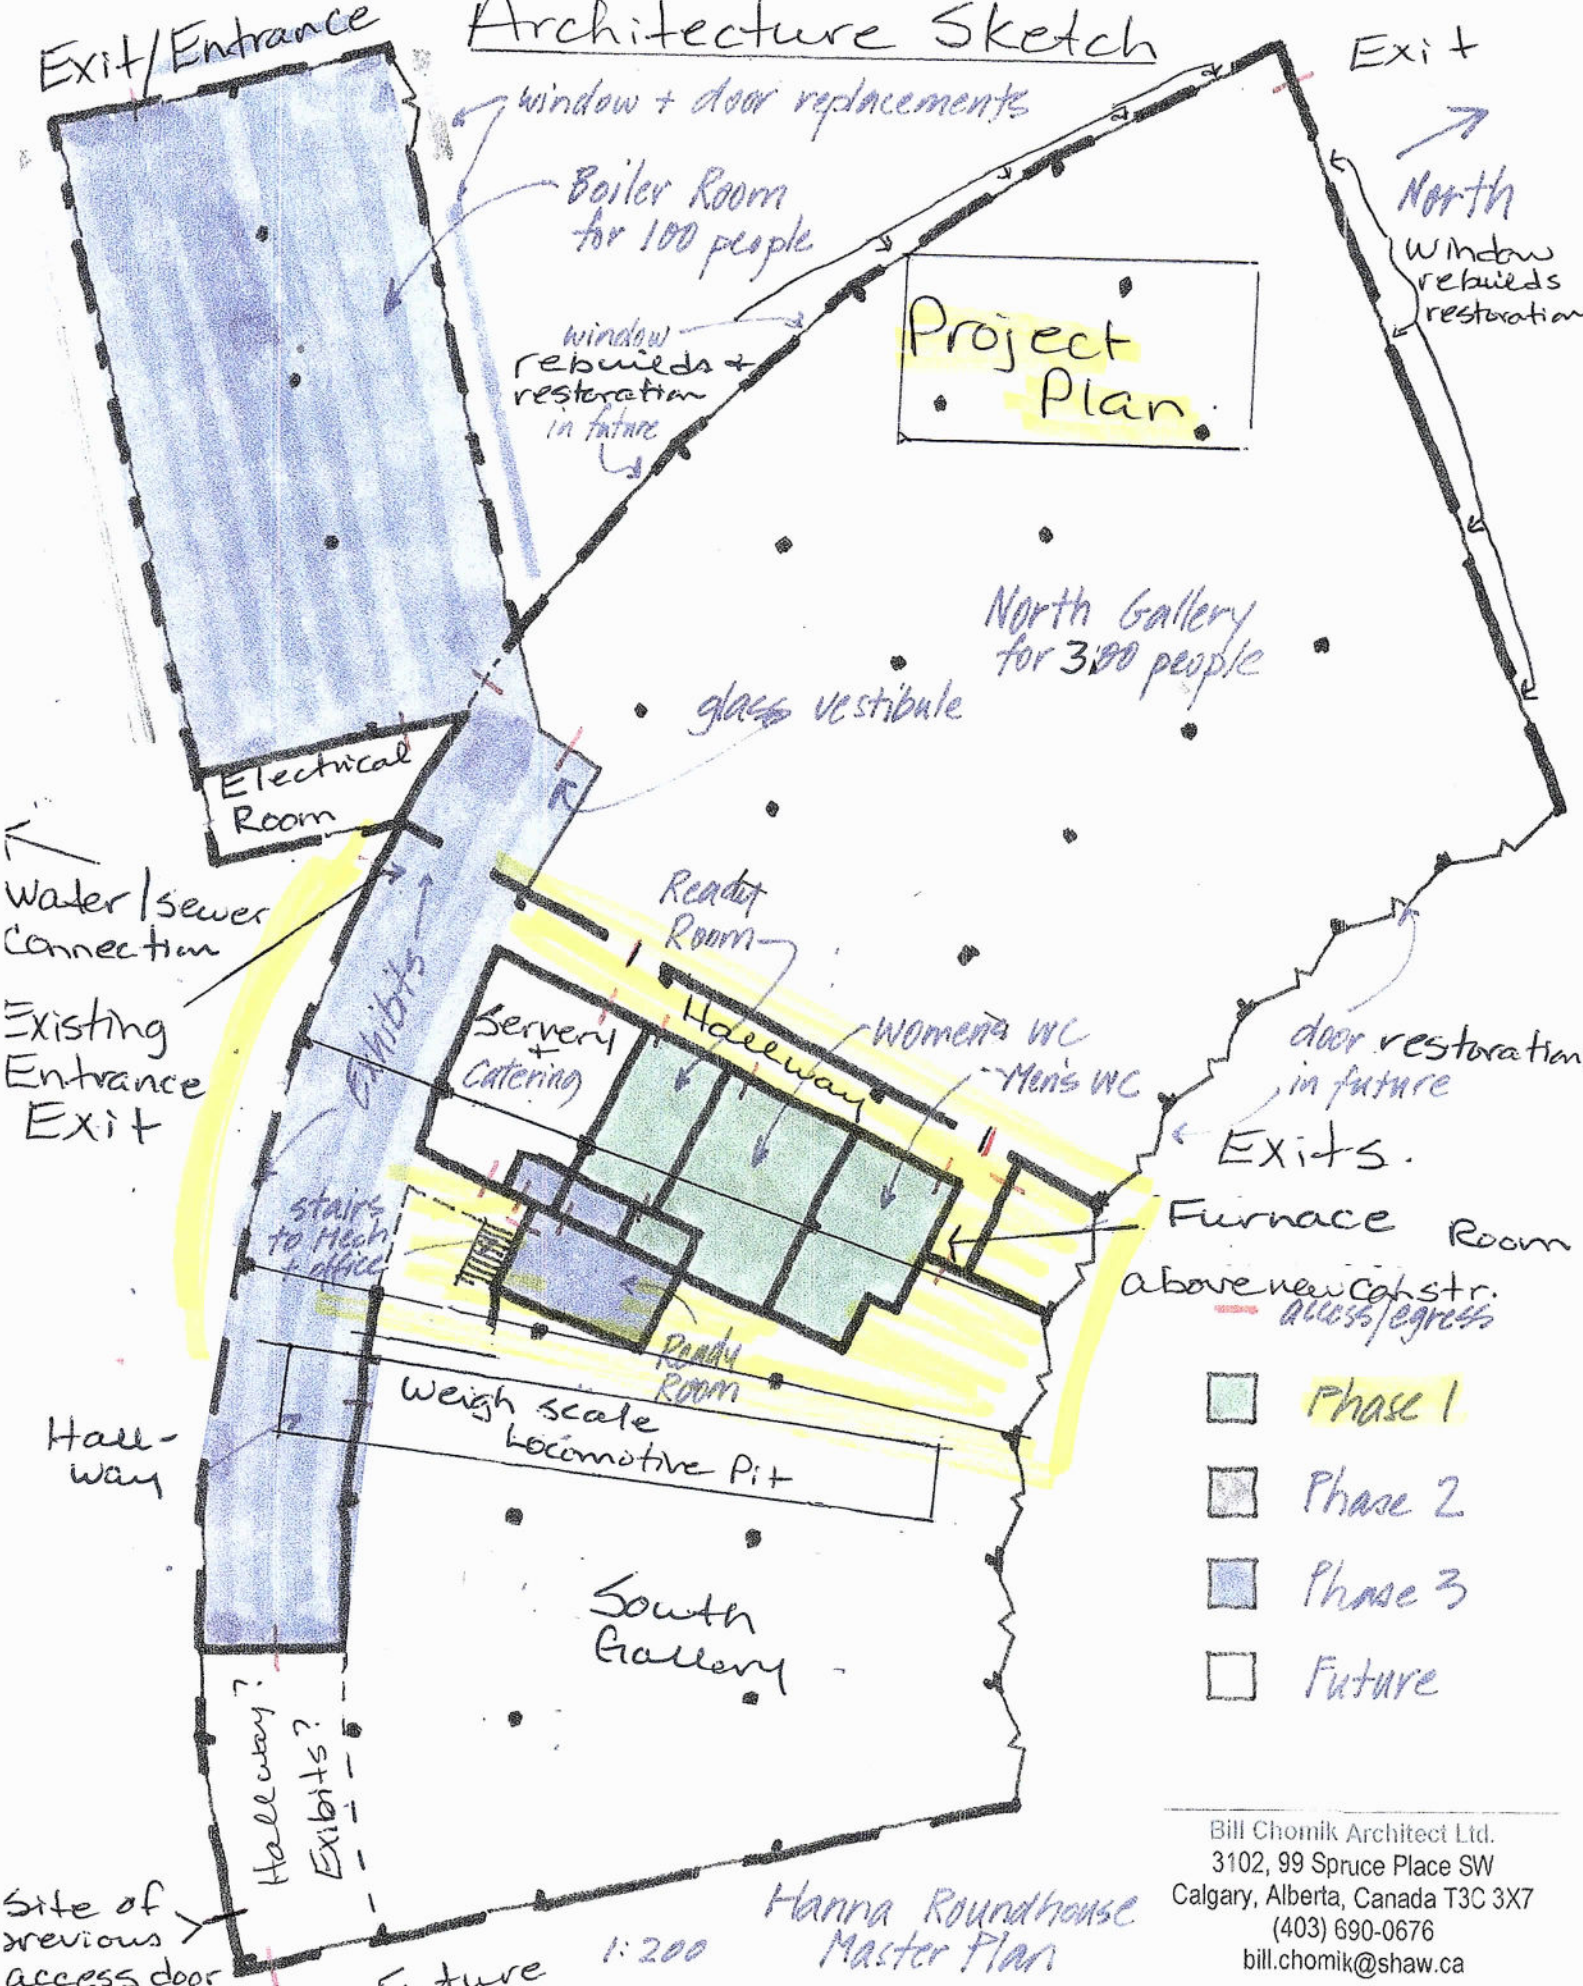 Architecture Sketch
Exit/Entrance
Exit
window + door replacements
Boiler Room
for 100 people
North
window
rebuilds
restoration
window
rebuilds +
restoration
in future
Project
Plan.
North Gallery
for 300 people
glass vestibule
Electrical
Room
Water/sewer
Connection
Existing
Entrance
Exit
Exhibits
Ready
Room
Hallway
Servery
+
Catering
Women's WC
Men's WC
door restoration
in future
Exits.
Furnace Room
above new constr.
access/egress
stairs
to Mech
+ office
Ready
Room
Weigh scale
Locomotive Pit
Hall-
way
Phase 1
Phase 2
Phase 3
Future
South
Gallery
Hallway?
Exibits?
Site of
previous
access door
Future
1:200
Hanna Roundhouse
Master Plan
Bill Chomik Architect Ltd.
3102, 99 Spruce Place SW
Calgary, Alberta, Canada T3C 3X7
(403) 690-0676
bill.chomik@shaw.ca